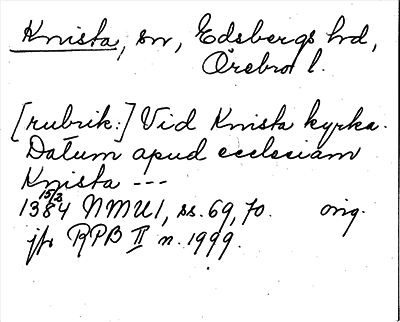 Knista, sn, Edsbergs hd,
Örebro l.
[rubrik:] Vid Knista kyrka.
Datum apud ecclesiam
Knista ---
15/3
1384 NMU1, ss. 69, 70. orig.
jfr RPB II n. 1999.